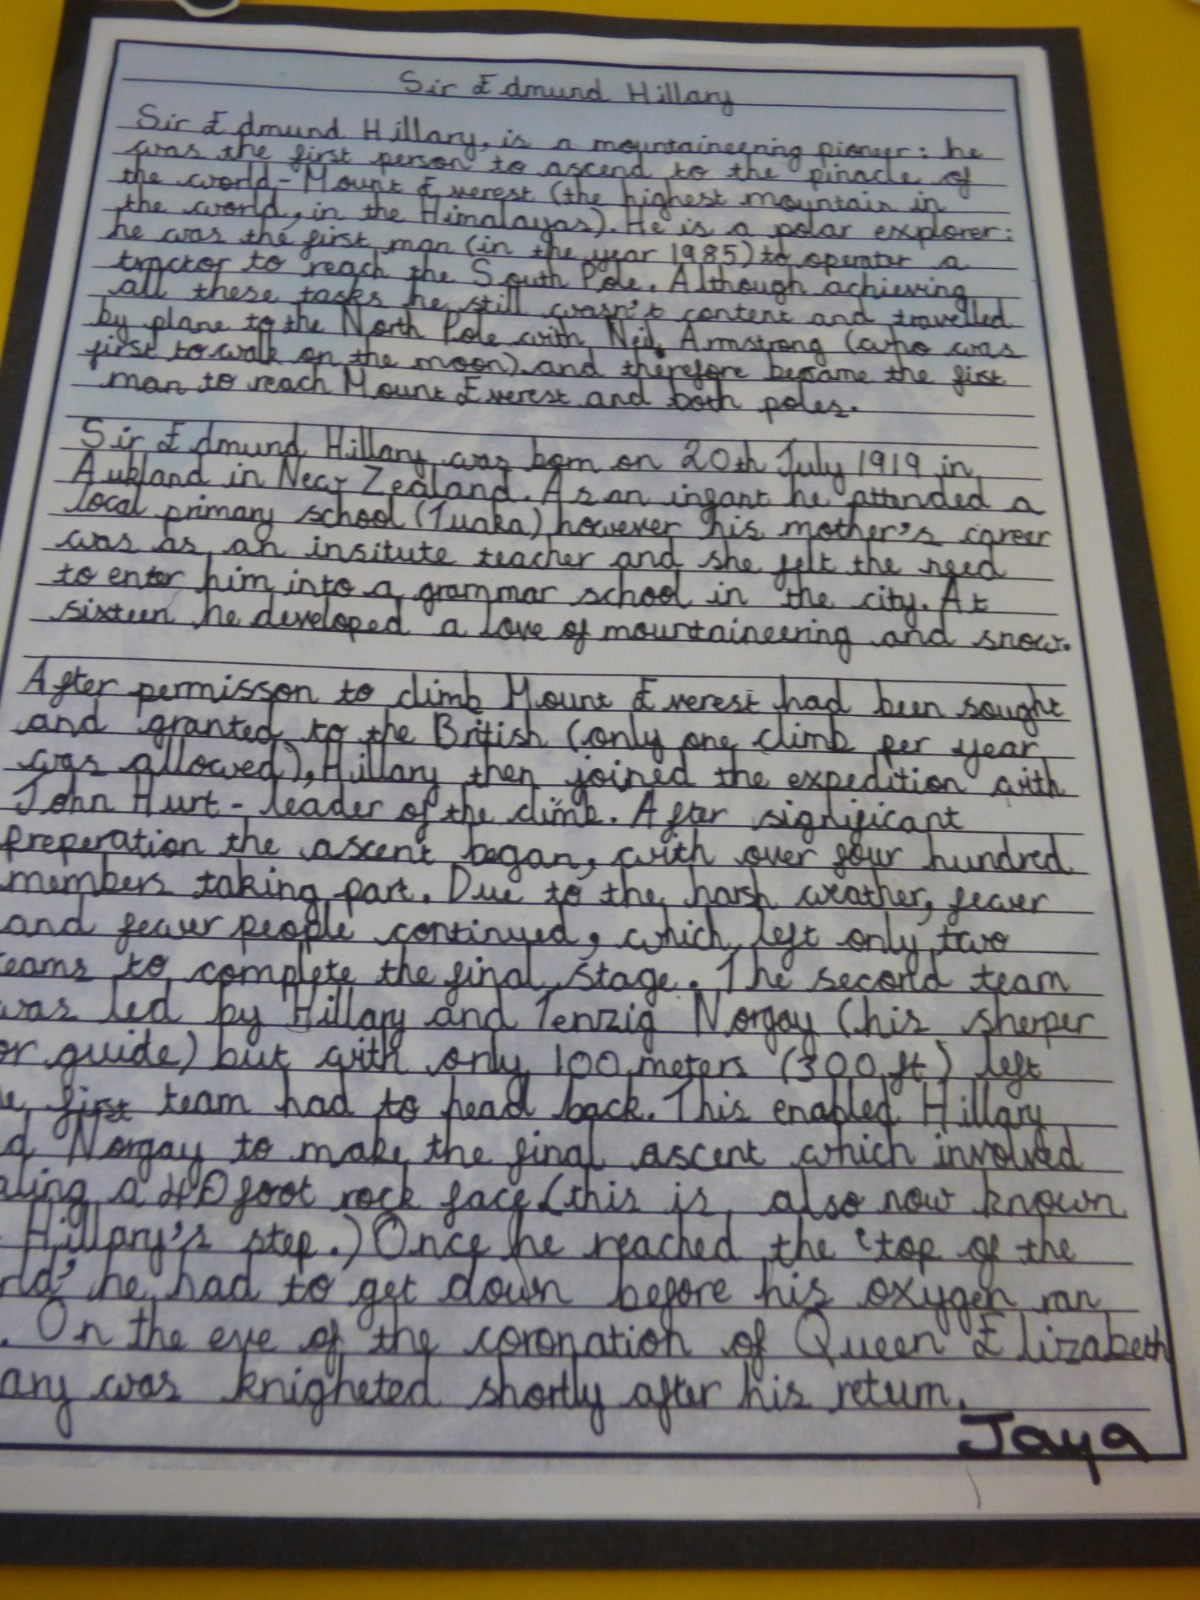 Sir Edmund Hillary
Sir Edmund Hillary, is a mountaineering pioneer: he
was the first person to ascend to the pinacle of
the world - Mount Everest (the highest mountain in
the world, in the Himalayas). He is a polar explorer:
he was the first man (in the year 1985) to operater a
tractor to reach the South Pole. Although achieving
all these tasks he still wasn't content and travelled
by plane to the North Pole with Neil Armstrong (who was
first to walk on the moon) and therefore became the first
man to reach Mount Everest and both poles.
Sir Edmund Hillary was born on 20th July 1919 in
Aukland in New Zealand. As an ingant he attended a
local primary school (Tuaka) however his mother's career
was as an insitute teacher and she felt the need
to enter him into a grammar school in the city. At
sixteen he developed a love of mountaineering and snow.
After permisson to climb Mount Everest had been sought
and granted to the British (only one climb per year
was allowed), Hillary then joined the expedition with
John Hurt - leader of the climb. After significant
preperation the ascent began, with over four hundred
members taking part. Due to the harsh weather, fewer
and fewer people continued, which left only two
teams to complete the final stage. The second team
was led by Hillary and Tenzig Norgay (his sherper
or guide) but with only 100 meters (300 ft) left
first team had to head back. This enabled Hillary
d Norgay to make the final ascent which involved
aling a 40 foot rock face (this is also now known
Hillary's step.) Once he reached the 'top of the
rld' he had to get down before his oxygen ran
. On the eve of the coronation of Queen Elizabeth
ary was knigheted shortly after his return.
Jaya